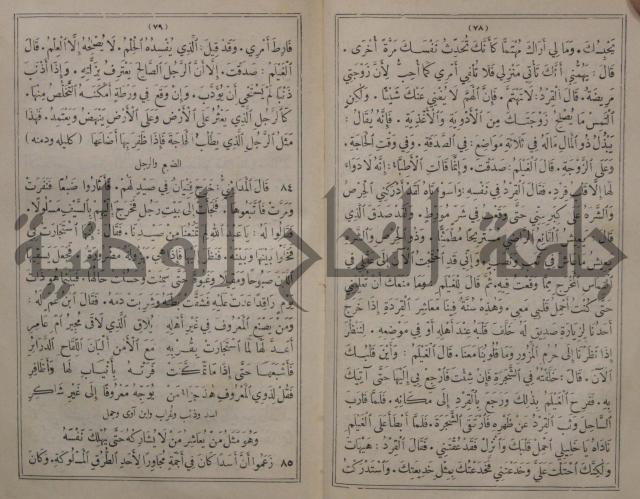 (٧٨)
يحبسك. وما لي أراك مهتما كأنك تحدث نفسك مرة أخرى.
قال: يهمني أنك تأتي منزلي فلا تلفي أمري كما أحب لأن زوجتي
مريضة. قال القرد: لا تهتم. فإن الهم لا يغني عنك شيئا. ولكن
التمس ما يصلح زوجتك من الأدوية والأغذية. فإنه يقال:
يبذل ذو المال ماله في ثلاثة مواضع: في الصدقة. وفي وقت الحاجة.
وعلى الزوجة. قال الغيلم: صدقت. وإنما قالت الأطباء: إنه لا دواء
لها إلا قلب قرد. فقال القرد في نفسه: واسوءتاه لقد أدركني الحرص
والشره على كبر سني حتى وقعت في شر مورط. ولقد صدق الذي
قال: يعيش القانع الراضي مستريحا مطمئنا. وذو الحرص والشره
يعيش ما عاش في تعب ونصب. وإني قد احتجت الآن إلى عقلي في
التماس المخرج مما وقعت فيه. ثم قال للغيلم: وما منعك أن تعلمني
حتى كنت أحمل قلبي معي. وهذه سنة فينا معاشر القردة إذا خرج
أحدنا لزيارة صديق له خلف قلبه عند أهله أو في موضعه. لننظر
إذا نظرنا إلى حرم المزور وما قلوبنا معنا. قال الغيلم: وأين قلبك
الآن. قال: خلفته في الشجرة فإن شئت فارجع بي إليها حتى آتيك
به. ففرح الغيلم بذلك ورجع بالقرد إلى مكانه. فلما قارب
الساحل وثب القرد عن ظهره فارتقى الشجرة. فلما أبطأ على الغيلم
ناداه يا خليلي احمل قلبك وانزل فقد عقتني. فقال القرد: هيهات
ولكنك احتلت علي وخدعتني فخدعتك بمثل خديعتك. واستدركت
(٧٩)
فارط أمري. وقد قيل: الذي يفسده الحلم. لا يصلحه إلا العلم. قال
الغيلم: صدقت. إلا أن الرجل الصالح يعترف بزلته. وإذا أذنب
ذنبا لم يستحي أن يؤدب. وإن وقع في ورطة أمكنه التخلص منها.
كالرجل الذي يعثر على الأرض وعلى الأرض ينهض ويعتمد. فهذا
مثل الرجل الذي يطلب الحاجة فإذا ظفر بها أضاعها (كليلة ودمنة)
الضبع والرجل
٨٤ قال المدائني: خرج فتيان في صيد لهم. فأثاروا ضبعا فنفرت
ومرت فاتبعوها. فلجأت إلى بيت رجل فخرج إليهم بالسيف مسلولا.
فقالوا له: يا عبد الله لم تمنعنا من صيدنا. فقال: إنها استجارت بي
فخلوا بينها وبينه.
يوم راقدا عدت عليه فشقت بطنه وشربت دمه. فقال ابن عم له:
ومن يصنع المعروف في غير أهله يلاق الذي لاقى مجير أم عامر
أعد لها لما استجارت بقربه مع الأمن ألبان اللقاح الدرائر
فأشبعها حتى إذا ما تمكنت فرته بأنياب لها وأظافر
فقل لذوي المعروف هذا جزاء من يوجه معروفا إلى غير شاكر
أسد وذئب وغراب وابن آوى وجمل
وهو مثل من يعاشر من لا يشاركه حتى يهلك نفسه
٨٥ زعموا أن أسدا كان في أجمة مجاورا لأحد الطرق المسلوكة. وكان
جامعة النجاح الوطنية